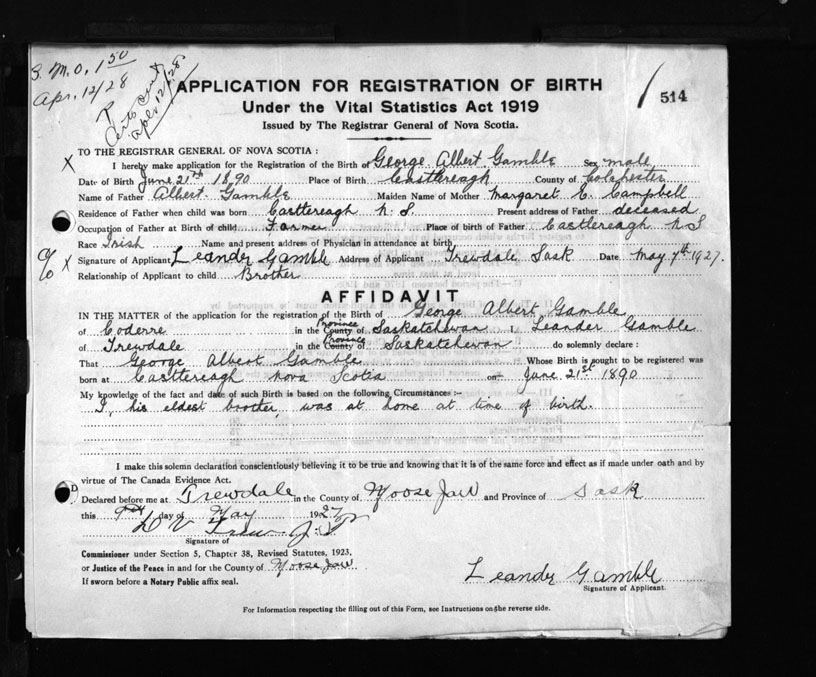 S.M.O. 1.50
Apr. 12/28
Certs sent
Apl. 12/28
APPLICATION FOR REGISTRATION OF BIRTH
514
Under the Vital Statistics Act 1919
Issued by The Registrar General of Nova Scotia.
X TO THE REGISTRAR GENERAL OF NOVA SCOTIA:
I hereby make application for the Registration of the Birth of George Albert Gamble Sex male
Date of Birth June 21st 1890 Place of Birth Castlereagh County of Colchester
Name of Father Albert Gamble Maiden Name of Mother Margaret E. Campbell
Residence of Father when child was born Castlereagh N.S. Present address of Father deceased
Occupation of Father at Birth of child Farmer Place of birth of Father Castlereagh N.S
Race Irish Name and present address of Physician in attendance at birth
% X Signature of Applicant Leander Gamble Address of Applicant Trewdale Sask Date May 7th 1927.
Relationship of Applicant to child Brother
AFFIDAVIT
IN THE MATTER of the application for the registration of the Birth of George Albert Gamble
of Coderre in the Province County of Saskatchewan I, Leander Gamble
of Trewdale in the Province County of Saskatchewan do solemnly declare:
That George Albert Gamble Whose Birth is sought to be registered was
born at Castlereagh Nova Scotia on June 21st 1890
My knowledge of the fact and date of such Birth is based on the following Circumstances:—
I, his eldest brother, was at home at time of birth.
I make this solemn declaration conscientiously believing it to be true and knowing that it is of the same force and effect as if made under oath and by
virtue of The Canada Evidence Act.
Declared before me at Trewdale in the County of Moose Jaw and Province of Sask
this 9th day of May 1927
D V Trew J.P.
Signature of
Commissioner under Section 5, Chapter 38, Revised Statutes, 1923,
or Justice of the Peace in and for the County of Moose Jaw
If sworn before a Notary Public affix seal.
Leander Gamble
Signature of Applicant.
For Information respecting the filling out of this Form, see Instructions on the reverse side.